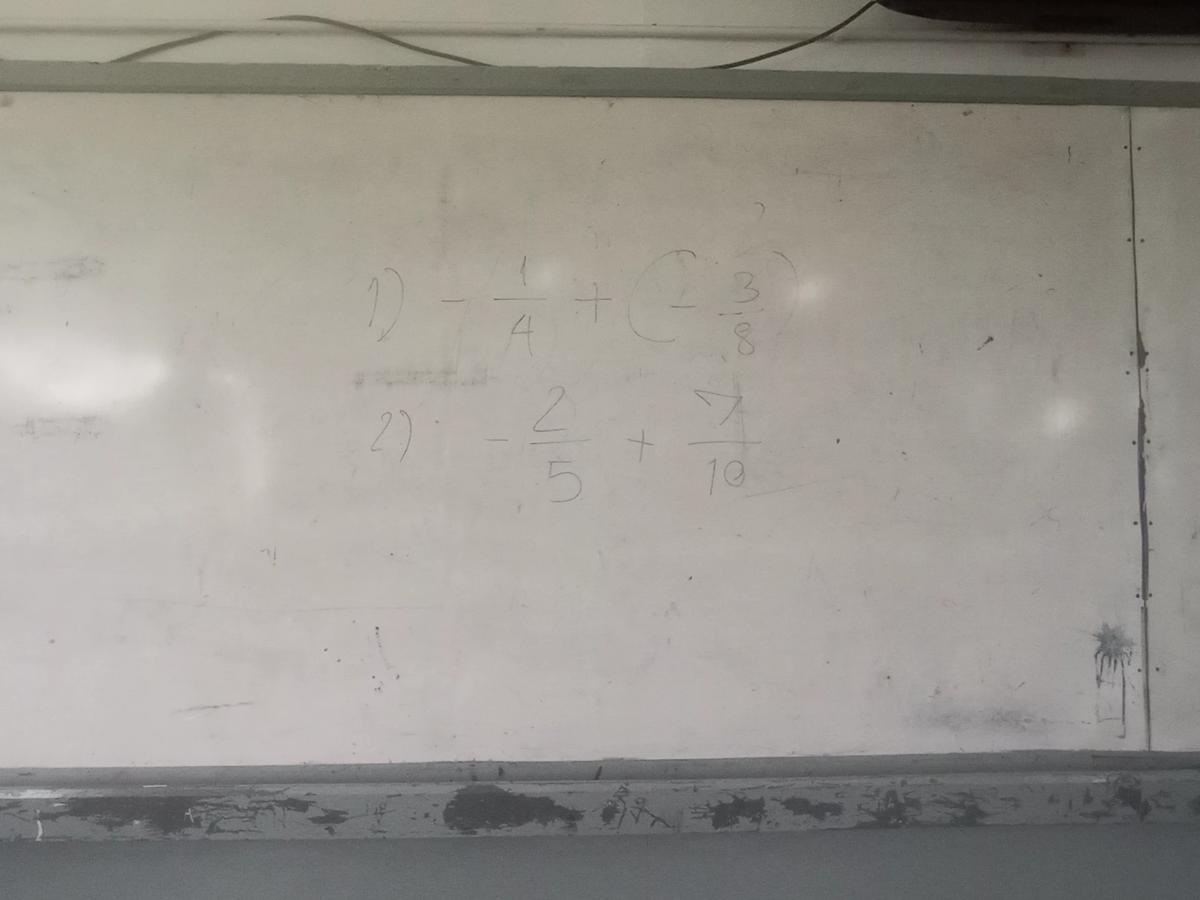 1) - 1/4 + (- 3/8)
2) - 2/5 + 7/10